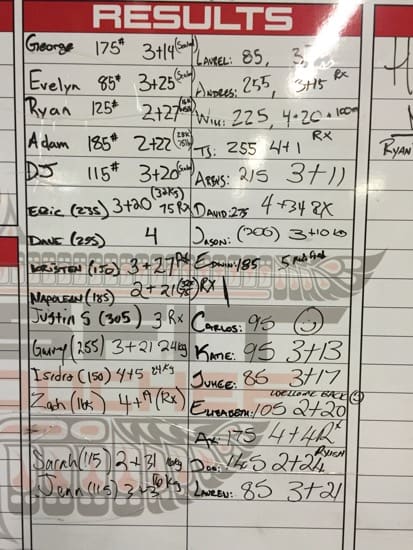 RESULTS
George 175# 3+14 (Scaled)
Evelyn 85# 3+25 (Scaled)
Ryan 125# 2+27
Adam 185# 2+22
DJ 115# 3+20 (Scaled)
Eric (235) 3+20 (32kg) 75 RX
Dave (295) 4
Kristen (130) 3+27 Rx
Napolean (185) 2+21 RX
Justin S (305) 3 Rx
Garry (255) 3+21 24kg
Isidro (150) 4+5 24kg
Zach (165) 4+9 (Rx)
Sarah (115) 2+31 16kg
Jenn (115) 3+3 16kg
Laurel: 85,
Andres: 255, 3+15 Rx
Will: 225, 4+20
TJ: 255 4+1 RX
215 3+11
David: 275 4+34 RX
Jason: (205) 3+10
Edwin: 185 5
Carlos: 95
Katie: 95 3+13
85 3+17
WELCOME BACK
Elizabeth: 105 2+20
Ax: 175 4+4 RX
145 2+24
Lauren: 85 3+21
Ryan